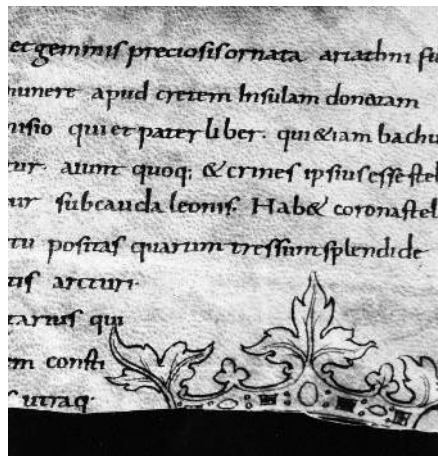 et gemmis preciosis ornata ariathni su
nunere apud cretem Insulam donatam
nisio qui et pater liber. qui &iam bachu
ur. aiunt quoq; & crines ipsius esse stel
ur sub cauda leonis. Hab& corona stel
tu positas quarum tres sunt splendide
tis arcturi.
tarius qui
em consti
s utraq